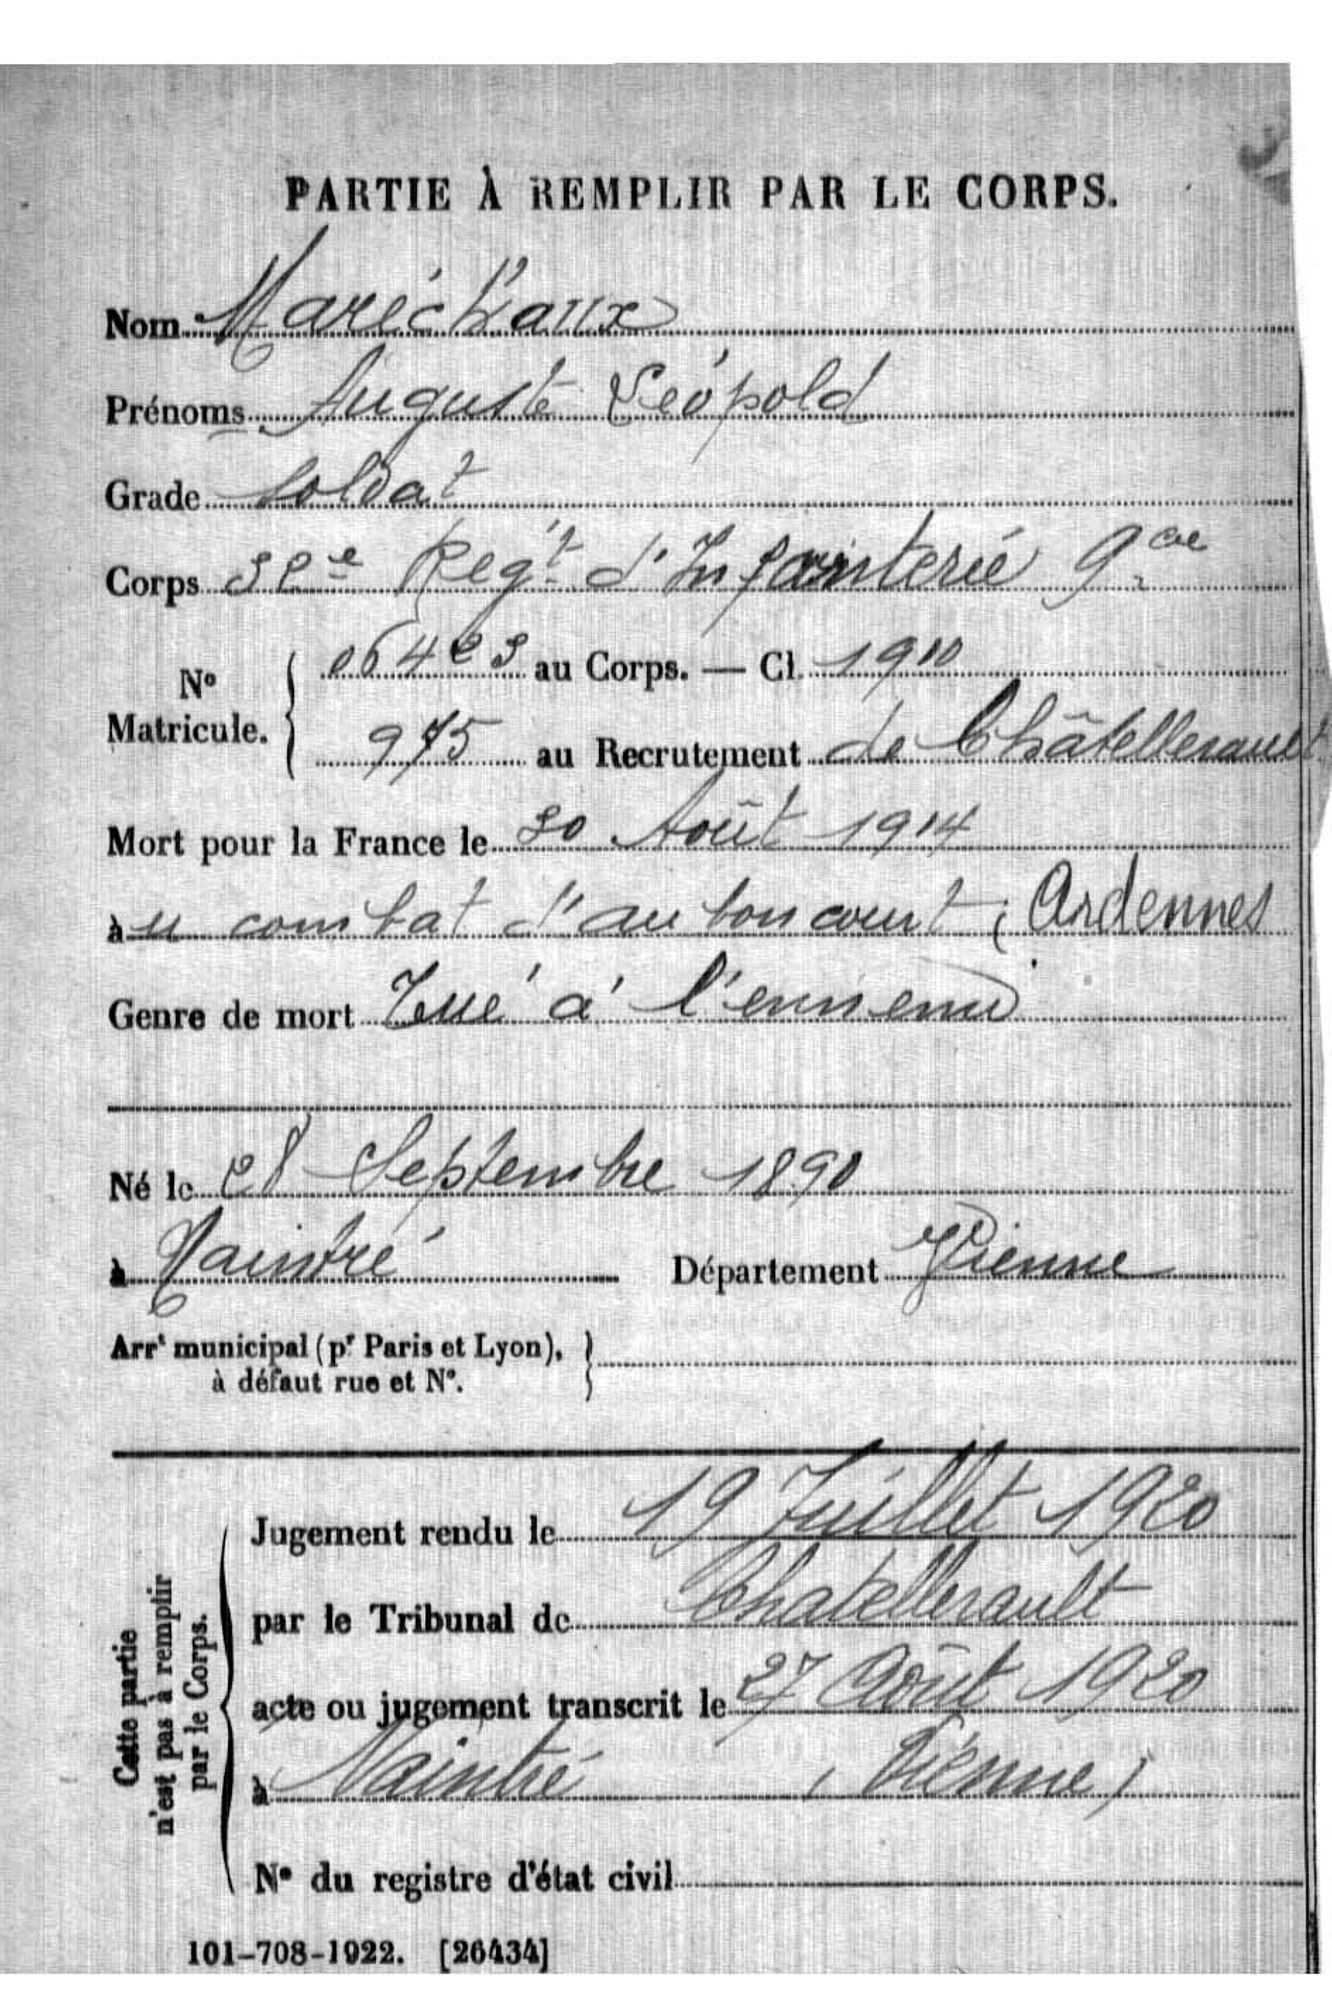 PARTIE À REMPLIR PAR LE CORPS.
Nom Maréchaux
Prénoms Auguste Léopold
Grade Soldat
Corps 32e Regt d'Infanterie 9 cie
No Matricule. { 06423 au Corps. — Cl. 1910
975 au Recrutement de Châtellerault
Mort pour la France le 30 Août 1914
au combat d'auboncourt (Ardennes
Genre de mort Tué à l'ennemi
Né le 28 Septembre 1890
à Naintré Département Vienne
Arrt municipal (pr Paris et Lyon), }
à défaut rue et No.
Cette partie
n'est pas à remplir
par le Corps.
Jugement rendu le 19 Juillet 1920
par le Tribunal de Chatellerault
acte ou jugement transcrit le 27 Août 1920
à Naintré (Vienne)
No du registre d'état civil
101-708-1922. [26434]